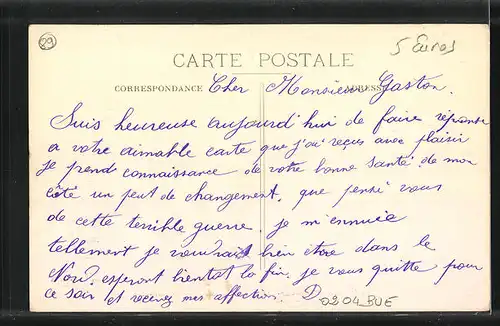 29
5 Euros
CARTE POSTALE
CORRESPONDANCE ADRESSE
Cher Monsieur Gaston.
Suis heureuse aujourd'hui de faire réponse
a votre aimable carte que j'ai reçus avec plaisir
je prend connaissance de votre bonne santé. de mon
côté un peut de changement, que pensé vous
de cette terrible guerre. je m'ennuie
tellement je voudrais bien être dans le
Nord. esperont bientot la fin. je vous quitte pour
ce soir et recevez mes affections. D